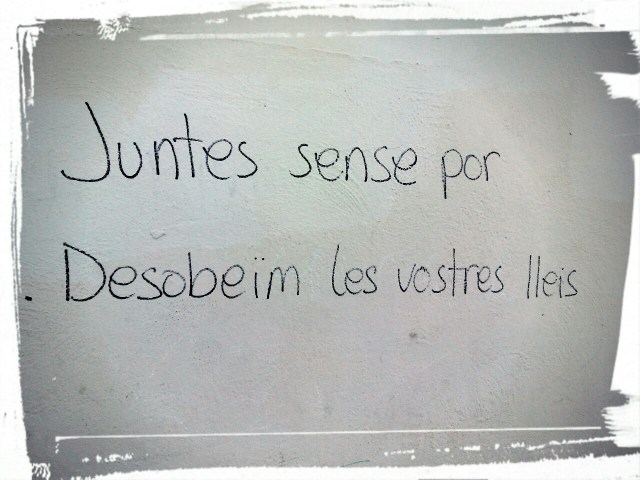 Juntes sense por
Desobeïm les vostres lleis